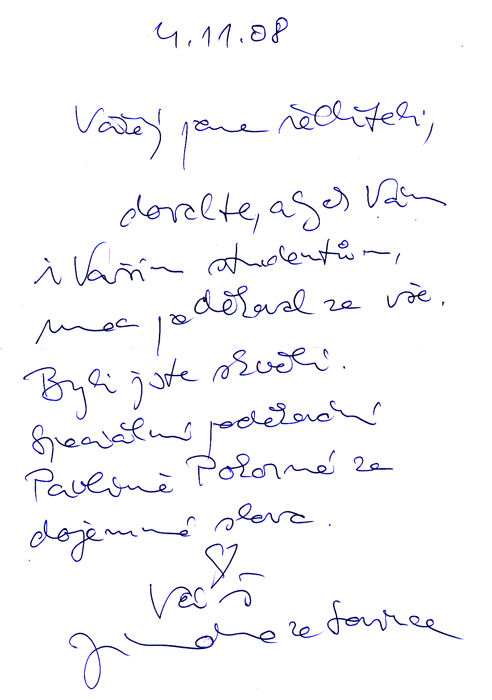 4.11.08
Vážený pane řediteli,
dovolte, abych Vám
i Vašim studentům,
moc poděkoval za vše.
Byli jste skvělí.
Speciální poděkování
Pavlíně Pokorné za
dojemná slova.
Váš